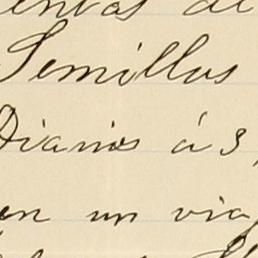 de
Semillas
Diarios á 3,
en un viaj